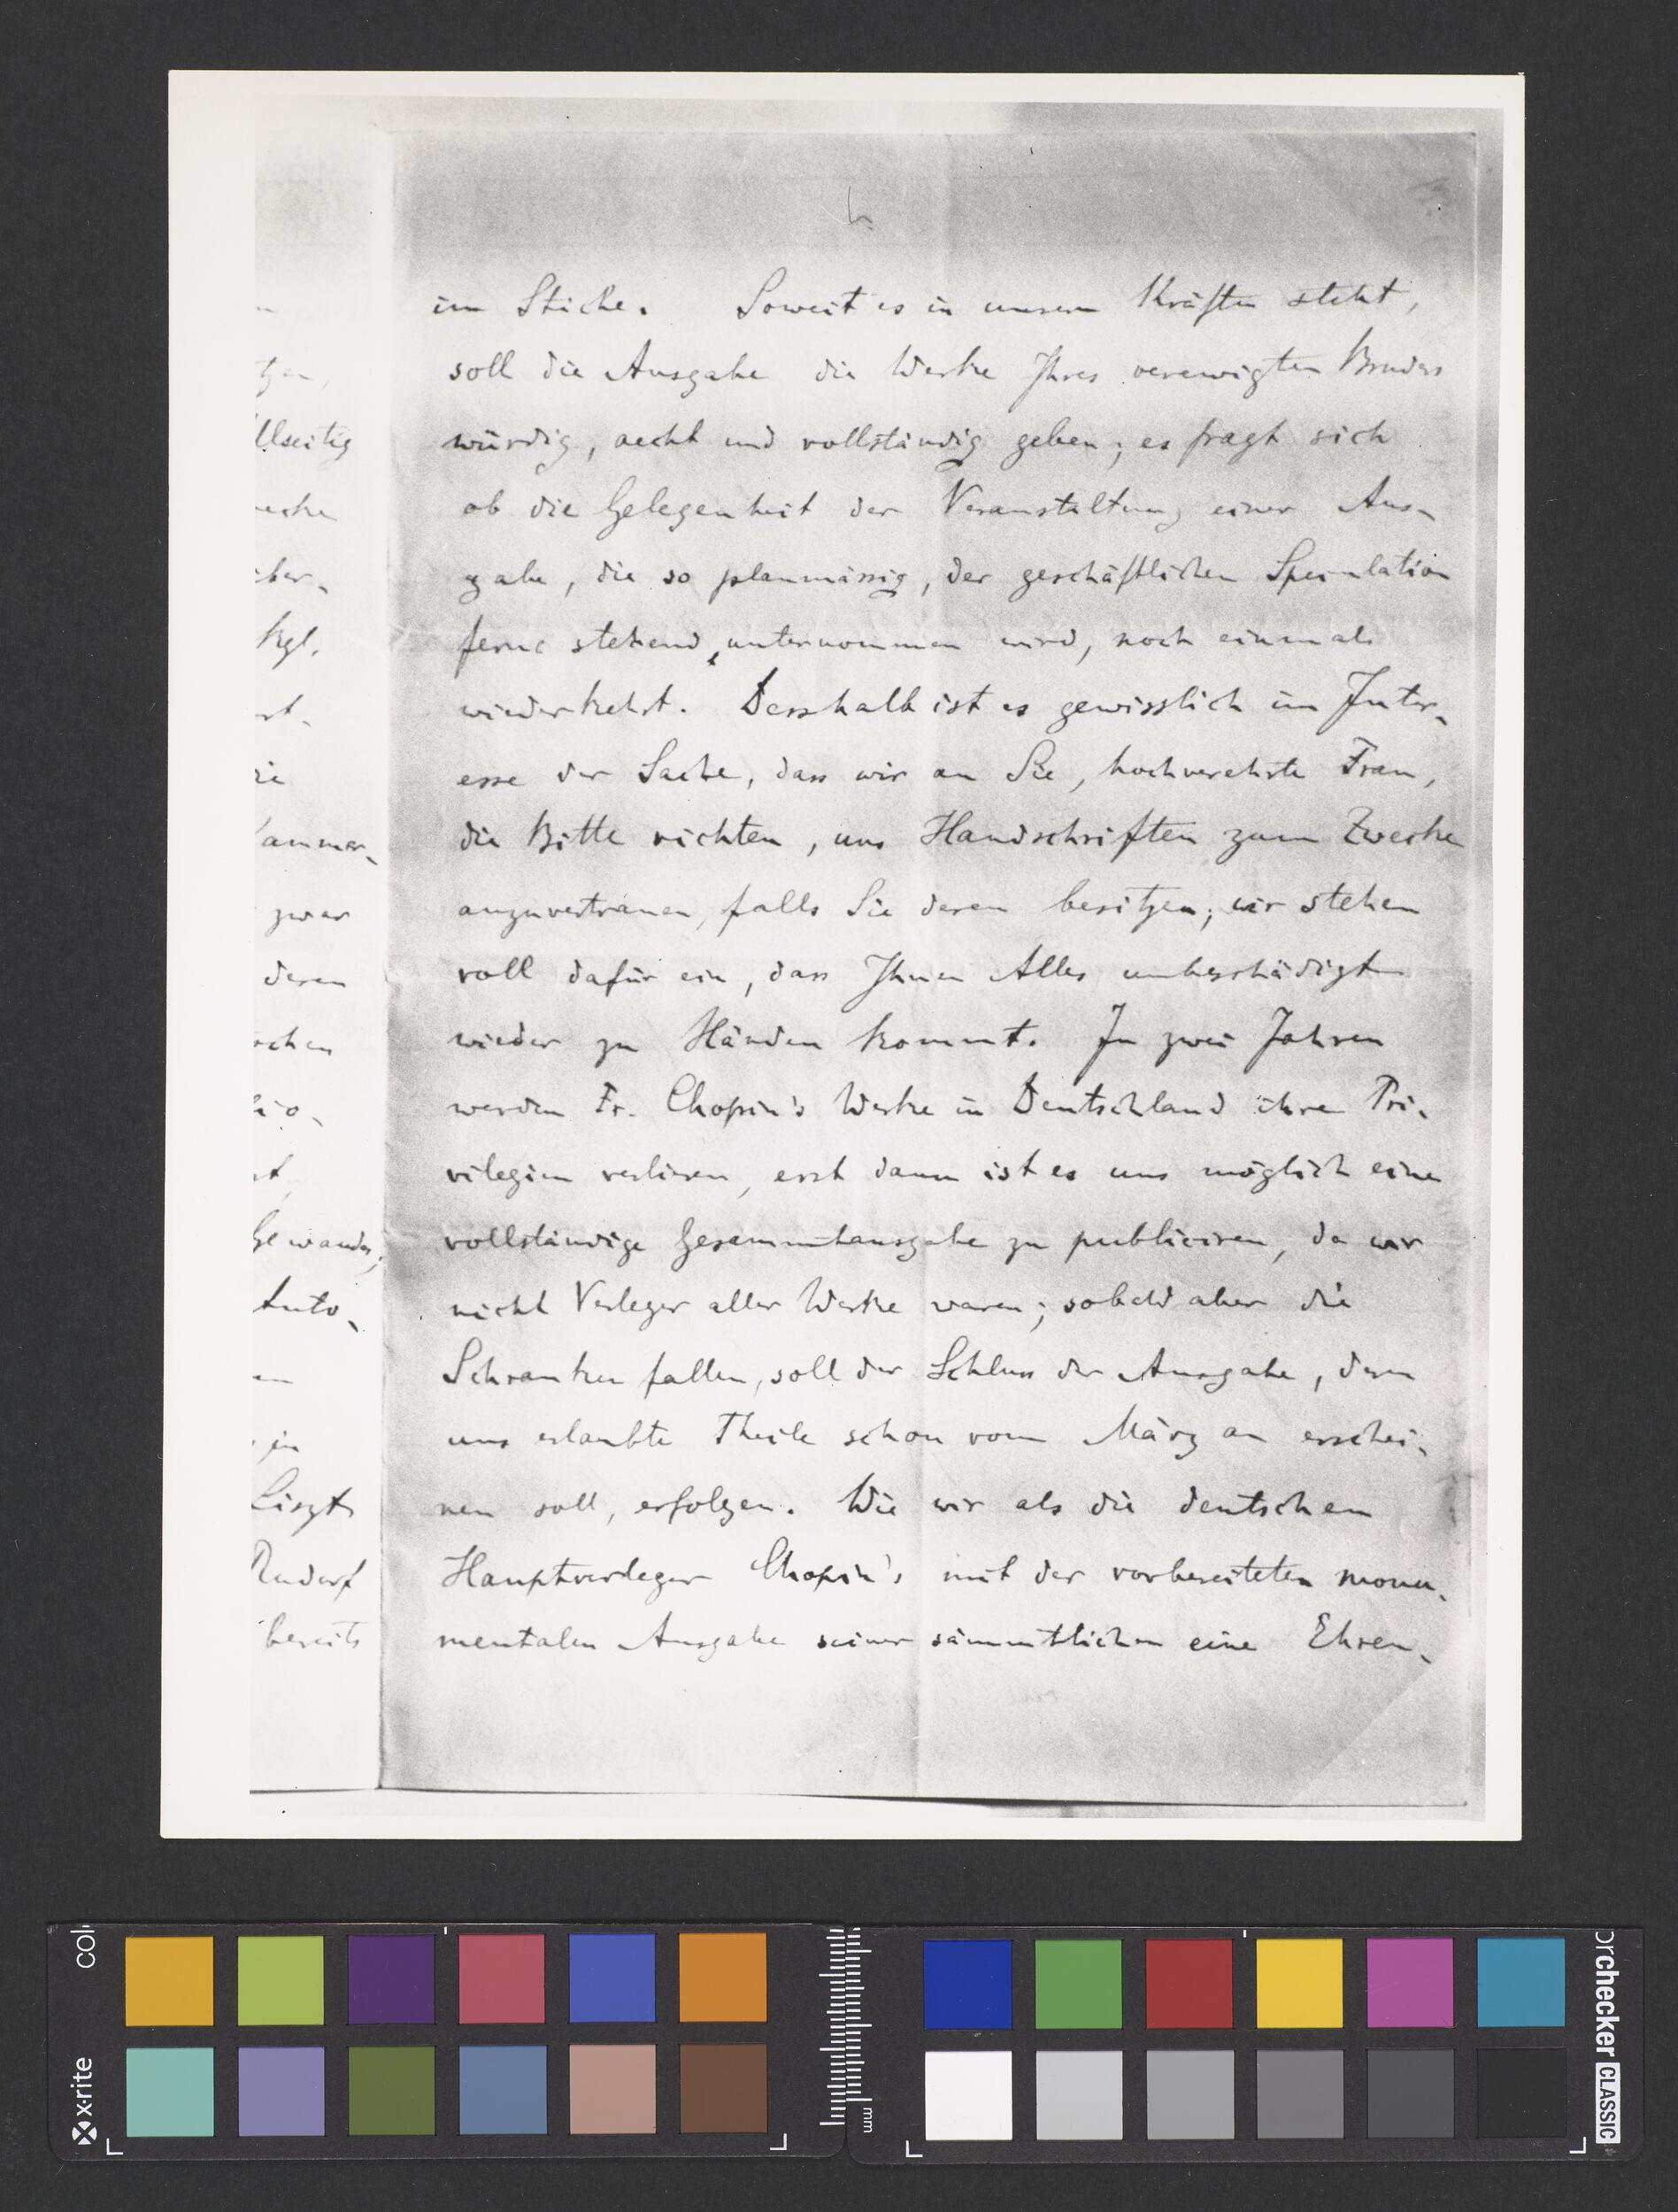 im Stiche. Soweit es in unsern Kräften steht,
soll die Ausgabe die Werke Ihres verewigten Bruders
würdig, aecht und vollständig geben; es fragt sich
ob die Gelegenheit der Veranstaltung einer Aus-
gabe, die so planmässig, der geschäftlichen Speculation
ferne stehend, unternommen wird, noch einmal
wiederkehrt. Desshalb ist es gewisslich im Inter-
esse der Sache, dass wir an Sie, hochverehrte Frau,
die Bitte richten, uns Handschriften zum Zwecke
anzuvertrauen, falls Sie deren besitzen; wir stehen
voll dafür ein, dass Ihnen Alles unbeschädigt
wieder zu Händen kommt. In zwei Jahren
werden Fr. Chopin's Werke in Deutschland ihre Pri-
vilegien verlieren, erst dann ist es uns möglich eine
vollständige Gesammtausgabe zu publiciren, da wir
nicht Verleger aller Werke waren; sobald aber die
Schranken fallen, soll der Schluss der Ausgabe, deren
uns erlaubte Theile schon vom März an erschei-
nen soll, erfolgen. Wie wir als die deutschen
Hauptverleger Chopin's mit der vorbereiteten monu-
mentalen Ausgabe seiner sämmtlichen eine Ehren-
llseitig
Kgl.
ammer-
zwar
deren
schen
Gewandh
Auto-
in
Liszt
Rudorf
bereits
colorchecker CLASSIC
x-rite
mm